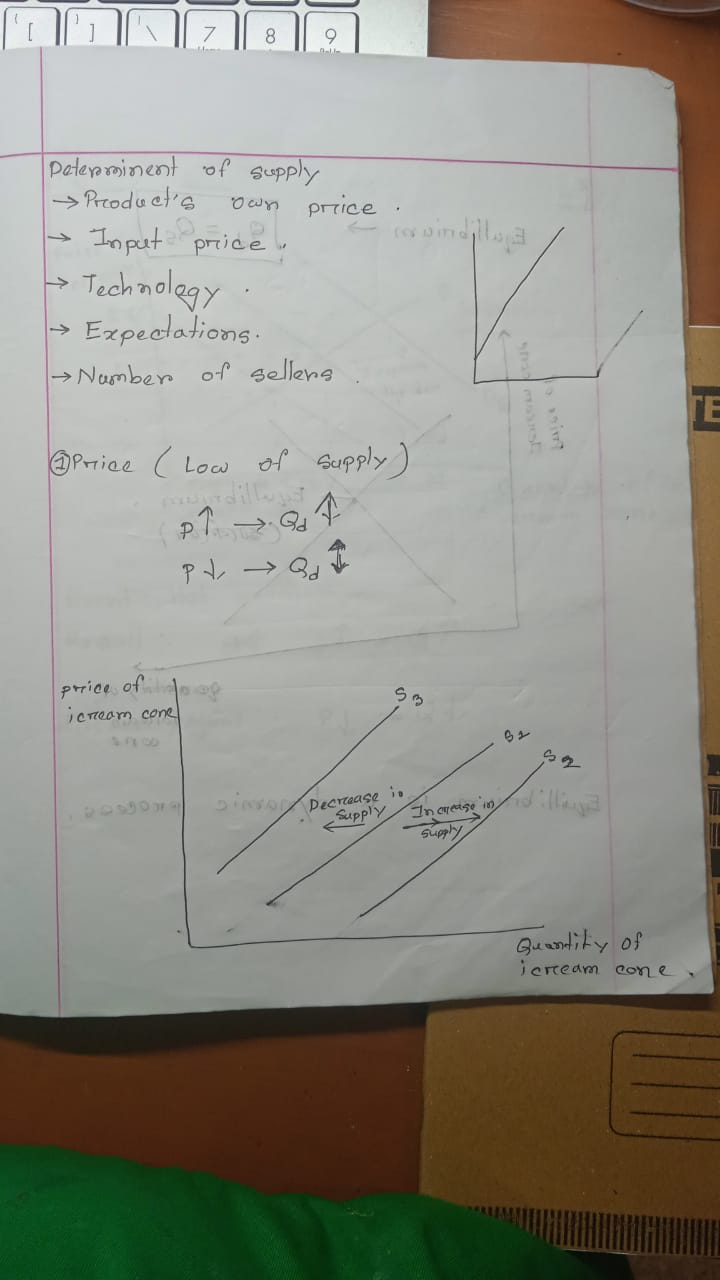 { [
} ]
| \
7
8
9
Determinent of supply
→ Product's own price .
→ Input price .
→ Technology .
→ Expectations.
→ Number of sellers .
① Price ( Low of supply )
P↑ → Qd ↑
P↓ → Qd ↓
price of
icream cone
S3
S1
S2
Decrease in
supply
←
Increase in
→
supply
Quantity of
icream cone .
TE